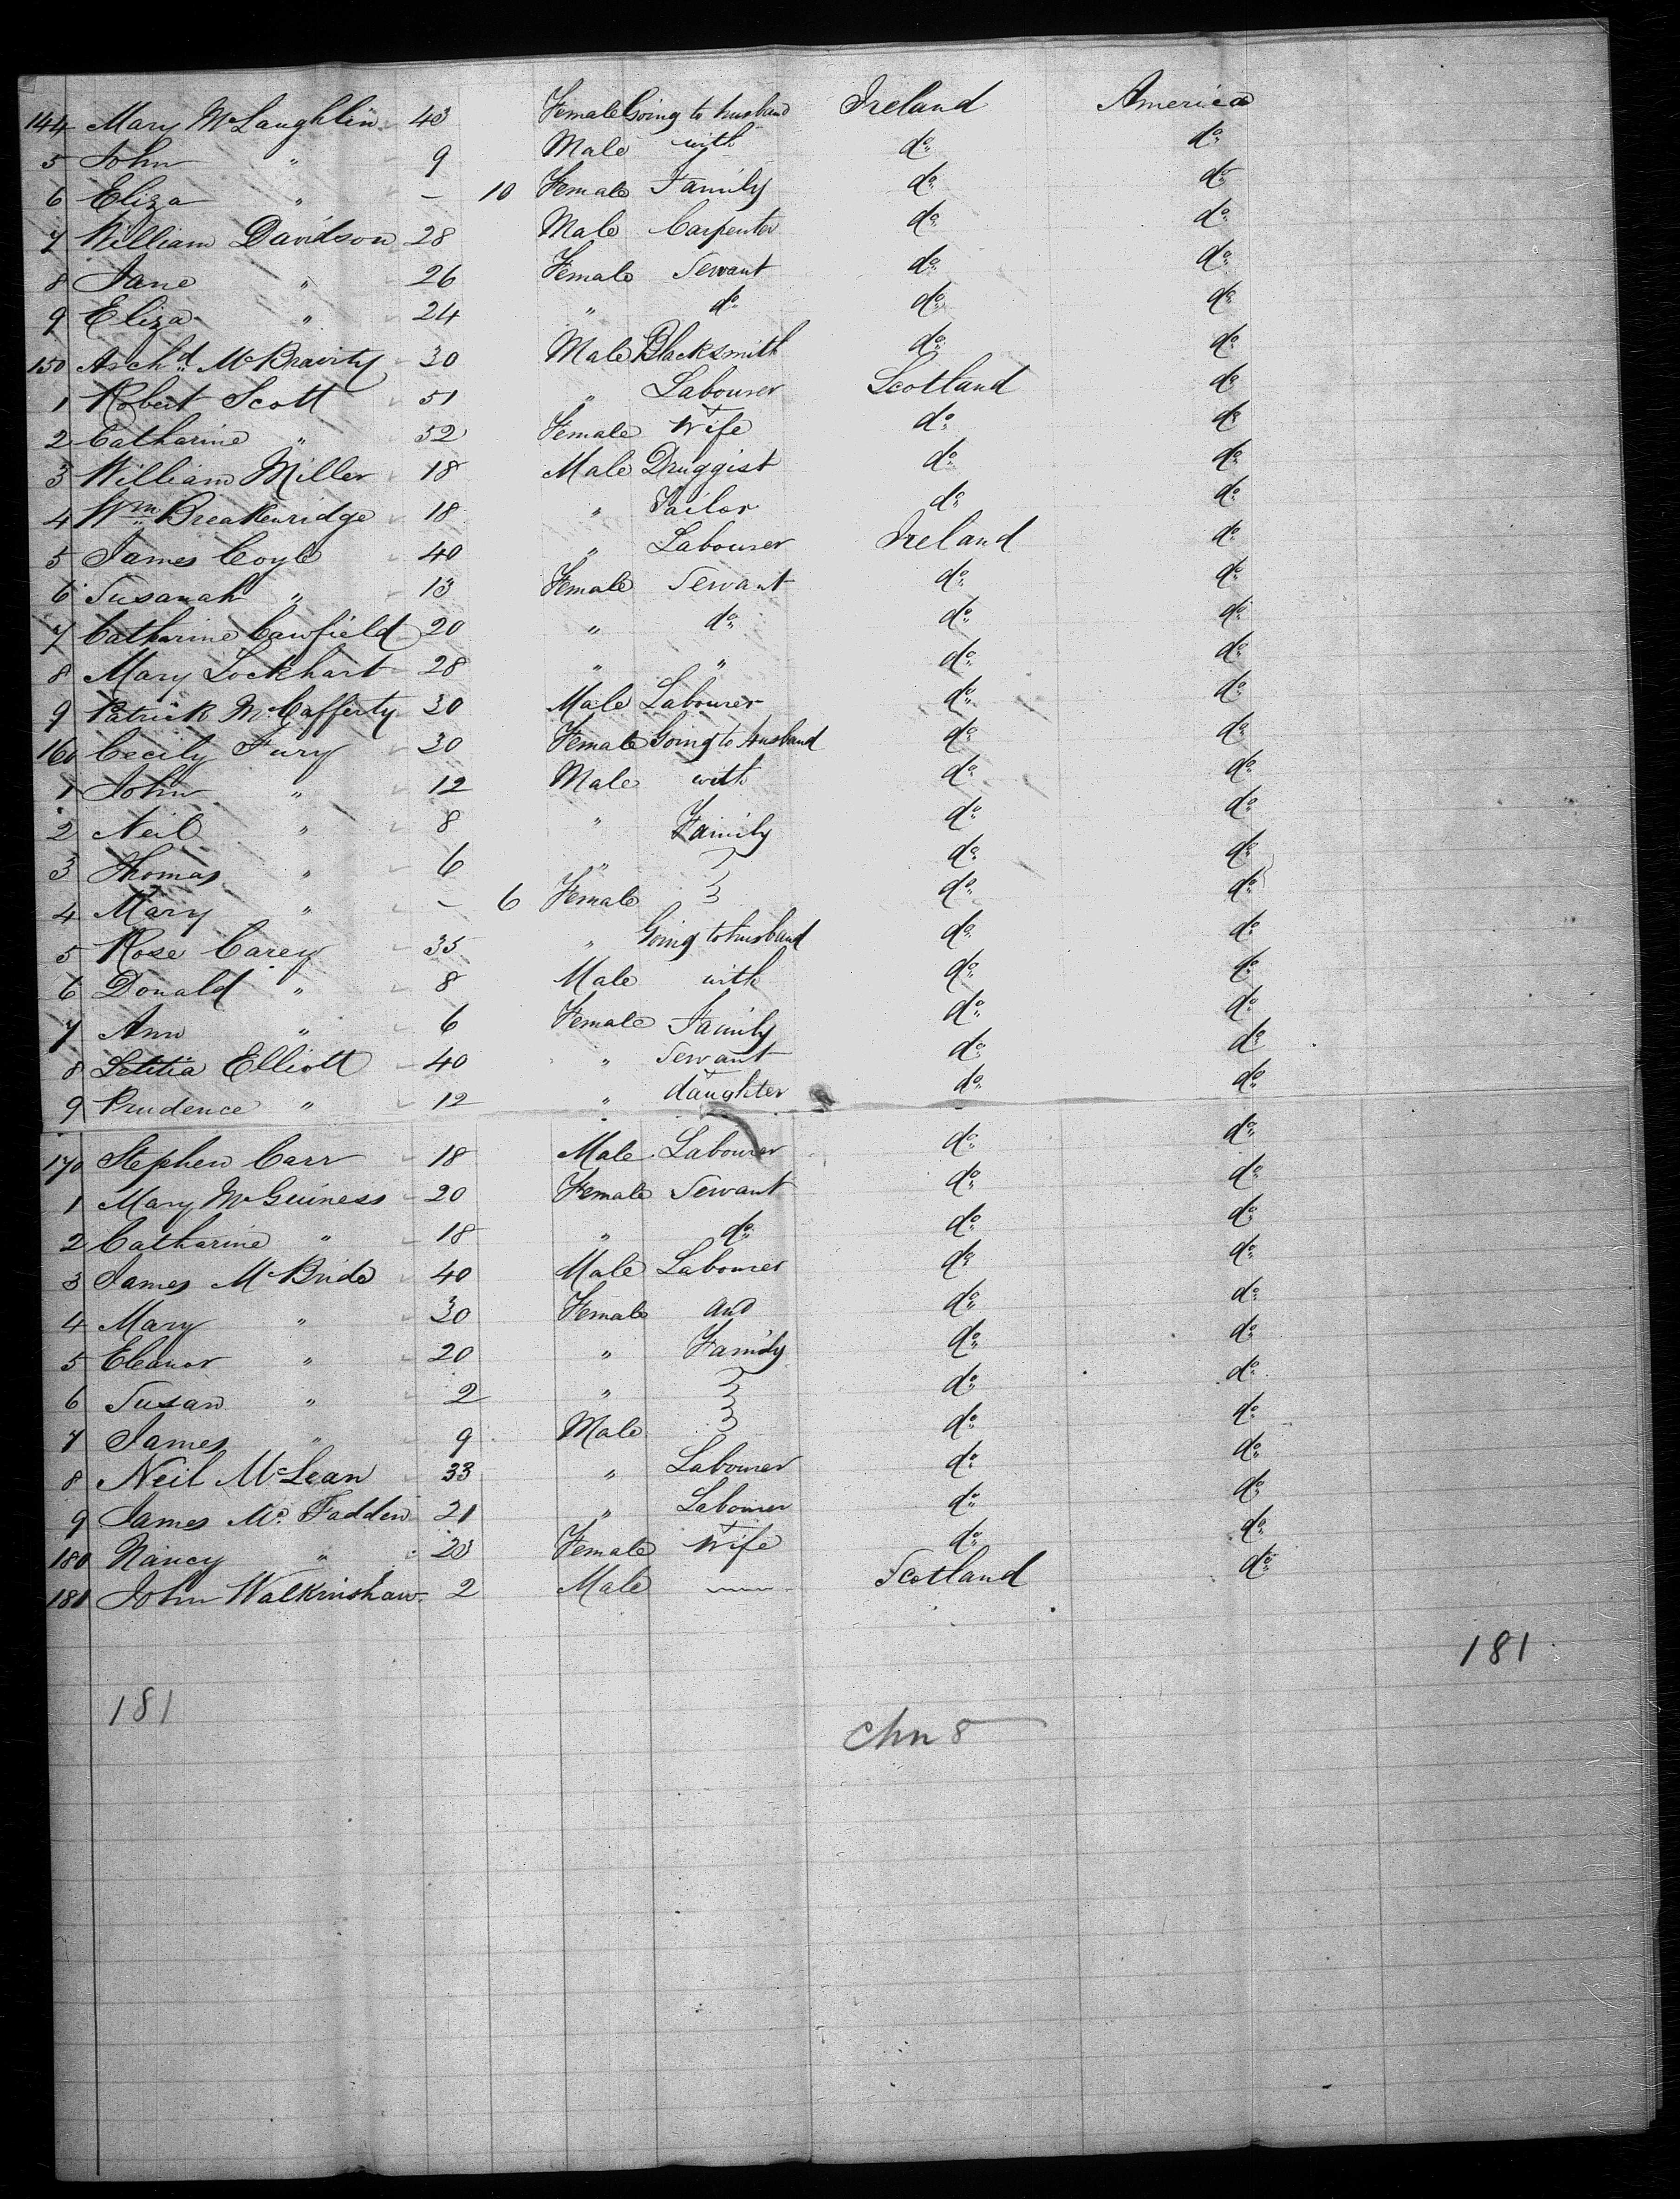 144 Mary McLaughlin 43 Female Going to husband Ireland America
5 John " 9 Male with do do
6 Eliza " – 10 Female Family do do
7 William Davidson 28 Male Carpenter do do
8 Jane " 26 Female Servant do do
9 Eliza " 24 " do do do
150 Archd McBravity 30 Male Blacksmith do do
1 Robert Scott 51 " Labourer Scotland do
2 Catharine " 52 Female Wife do do
3 William Miller 18 Male Druggist do do
4 Wm Breakenridge 18 " Tailor do do
5 James Coyle 40 " Labourer Ireland do
6 Susanah " 13 Female Servant do do
7 Catharine Cawfield 20 " do do do
8 Mary Lockhart 28 " " do do
9 Patrick McCafferty 30 Male Labourer do do
160 Cecily Fury 30 Female Going to Husband do do
1 John " 12 Male with do do
2 Neil " 8 " Family do do
3 Thomas " 6 " do do
4 Mary " – 6 Female do do
5 Rose Carey 35 " Going to husband do do
6 Donald " 8 Male with do do
7 Ann " 6 Female Family do do
8 Letitia Elliott 40 " Servant do do
9 Prudence " 12 " daughter do do
170 Stephen Carr 18 Male Labourer do do
1 Mary McGuiness 20 Female Servant do do
2 Catharine " 18 " do do do
3 James McBride 40 Male Labourer do do
4 Mary " 30 Female and do do
5 Eleanor " 20 " Family do do
6 Susan " 2 " do do
7 James " 9 Male do do
8 Neil McLean 33 " Labourer do do
9 James Mc Fadden 21 " Labourer do do
180 Nancy " 23 Female Wife do do
181 John Walkinshaw 2 Male Scotland do
181
181
Chn 8